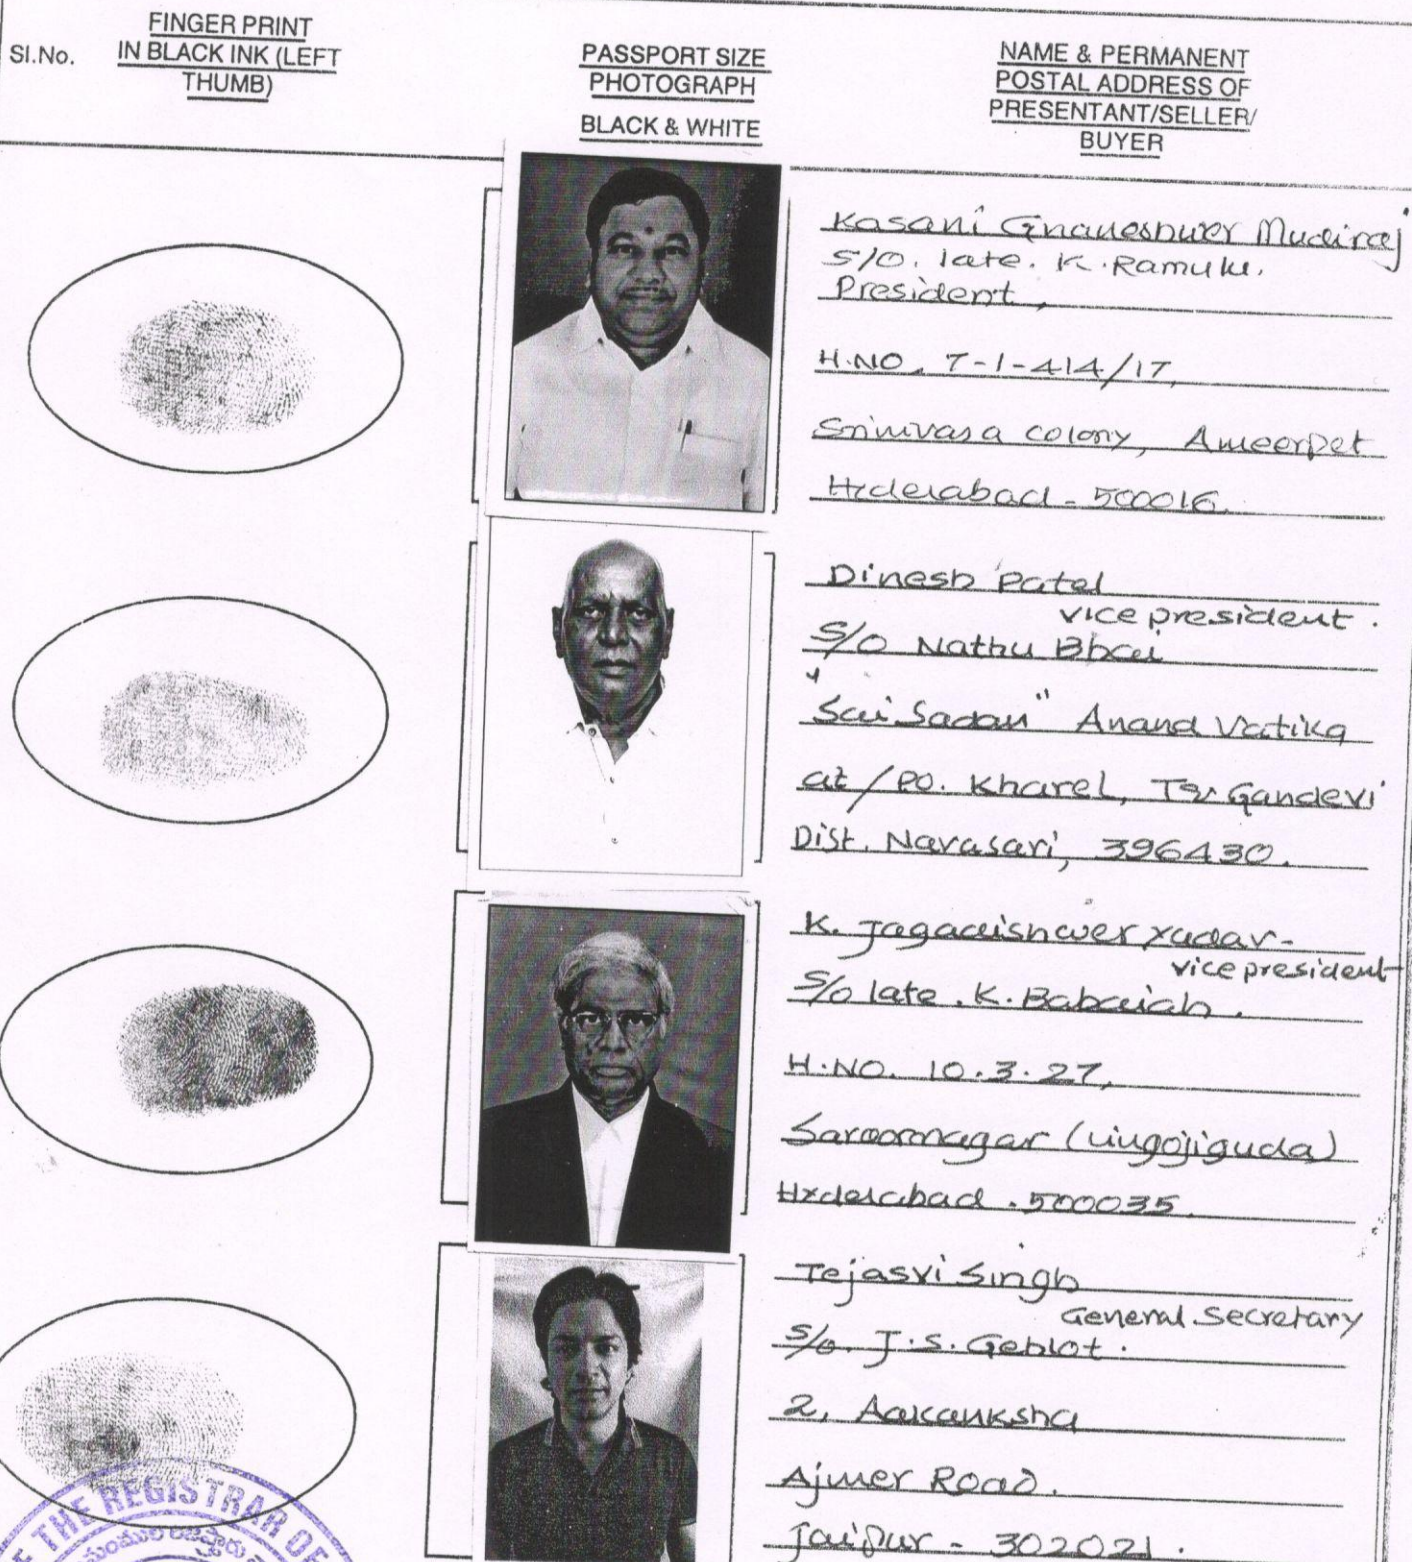 Sl.No.
FINGER PRINT
IN BLACK INK (LEFT
THUMB)
PASSPORT SIZE
PHOTOGRAPH
BLACK & WHITE
NAME & PERMANENT
POSTAL ADDRESS OF
PRESENTANT/SELLER/
BUYER
Kasani Gnaneshwer Mudiraj
S/O. late. K. Ramulu.
President,
H.NO. 7-1-414/17,
Srinivasa colony, Ameerpet
Hyderabad - 500016.
Dinesh Patel
vice president.
S/O Nathu Bhai
"Sai Sadan" Anand Vatika
at/PO. Kharel, Gandevi
Dist. Navasari, 396430.
K. Jagadishwer Yadav-
vice president
S/o late. K. Babaiah.
H.NO. 10.3.27,
Saroornagar (Lingojiguda)
Hyderabad. 500035.
Tejasvi Singh
General Secretary
S/o. J.S. Gehlot.
2, Aakanksha
Ajmer Road.
Jaipur - 302021.
THE REGISTRAR OF